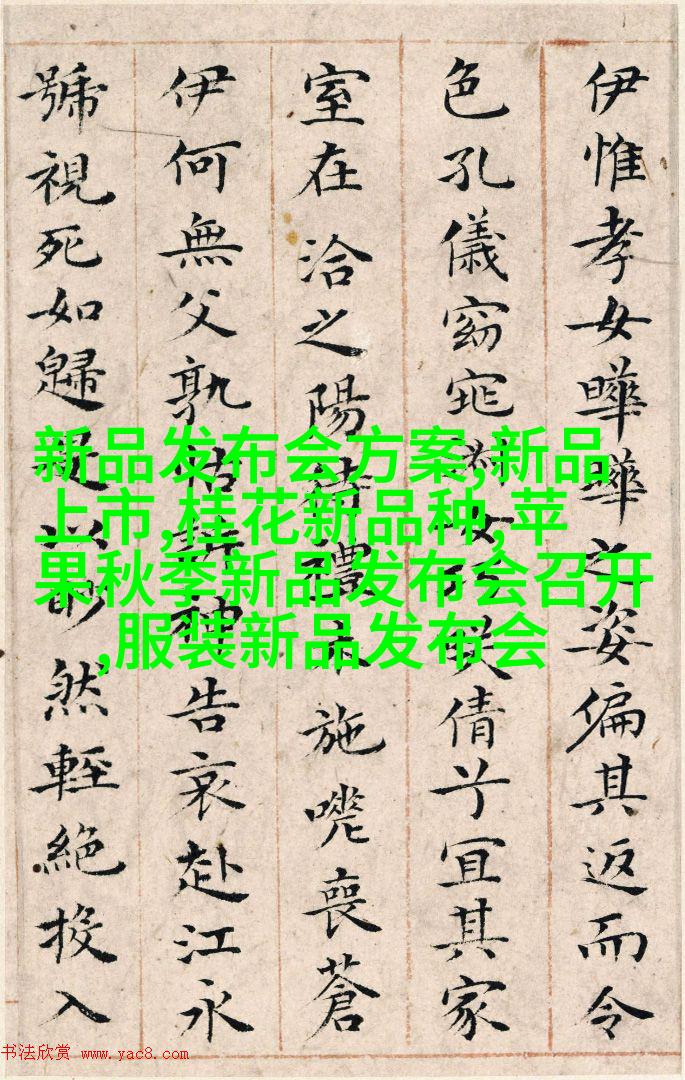 伊惟孝女曄曄之姿偏其返而令
色孔儀窈窕淑女巧笑倩兮宜其家
室在洽之陽待禮未施嗟喪蒼
伊何無父孰怙訴神告哀赴江永
號視死如歸是以眇然輕絕投入
新品发布会方案,新品
上市,桂花新品种,苹
果秋季新品发布会召开
,服装新品发布会
书法欣赏 www.yac8.com